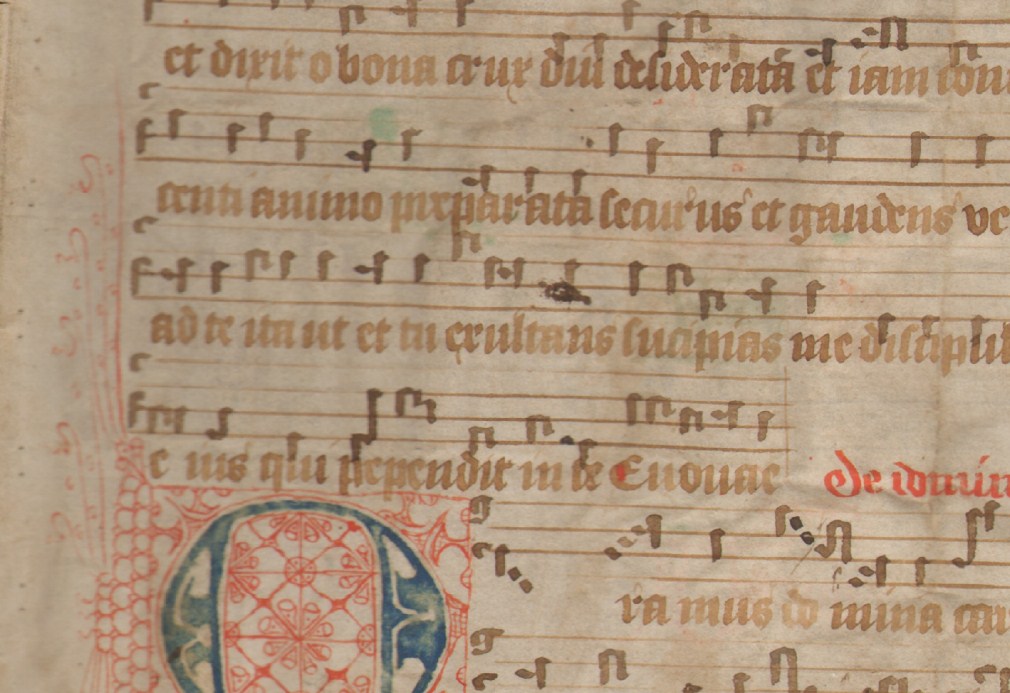 et dixit o bona crux diu desiderata et iam con
centi animo preparata securus et gaudens ve
ad te ita ut et tu exultans suscipias me discipul
e ius qui pependit in te Euouae
De domin
ra mus do mina